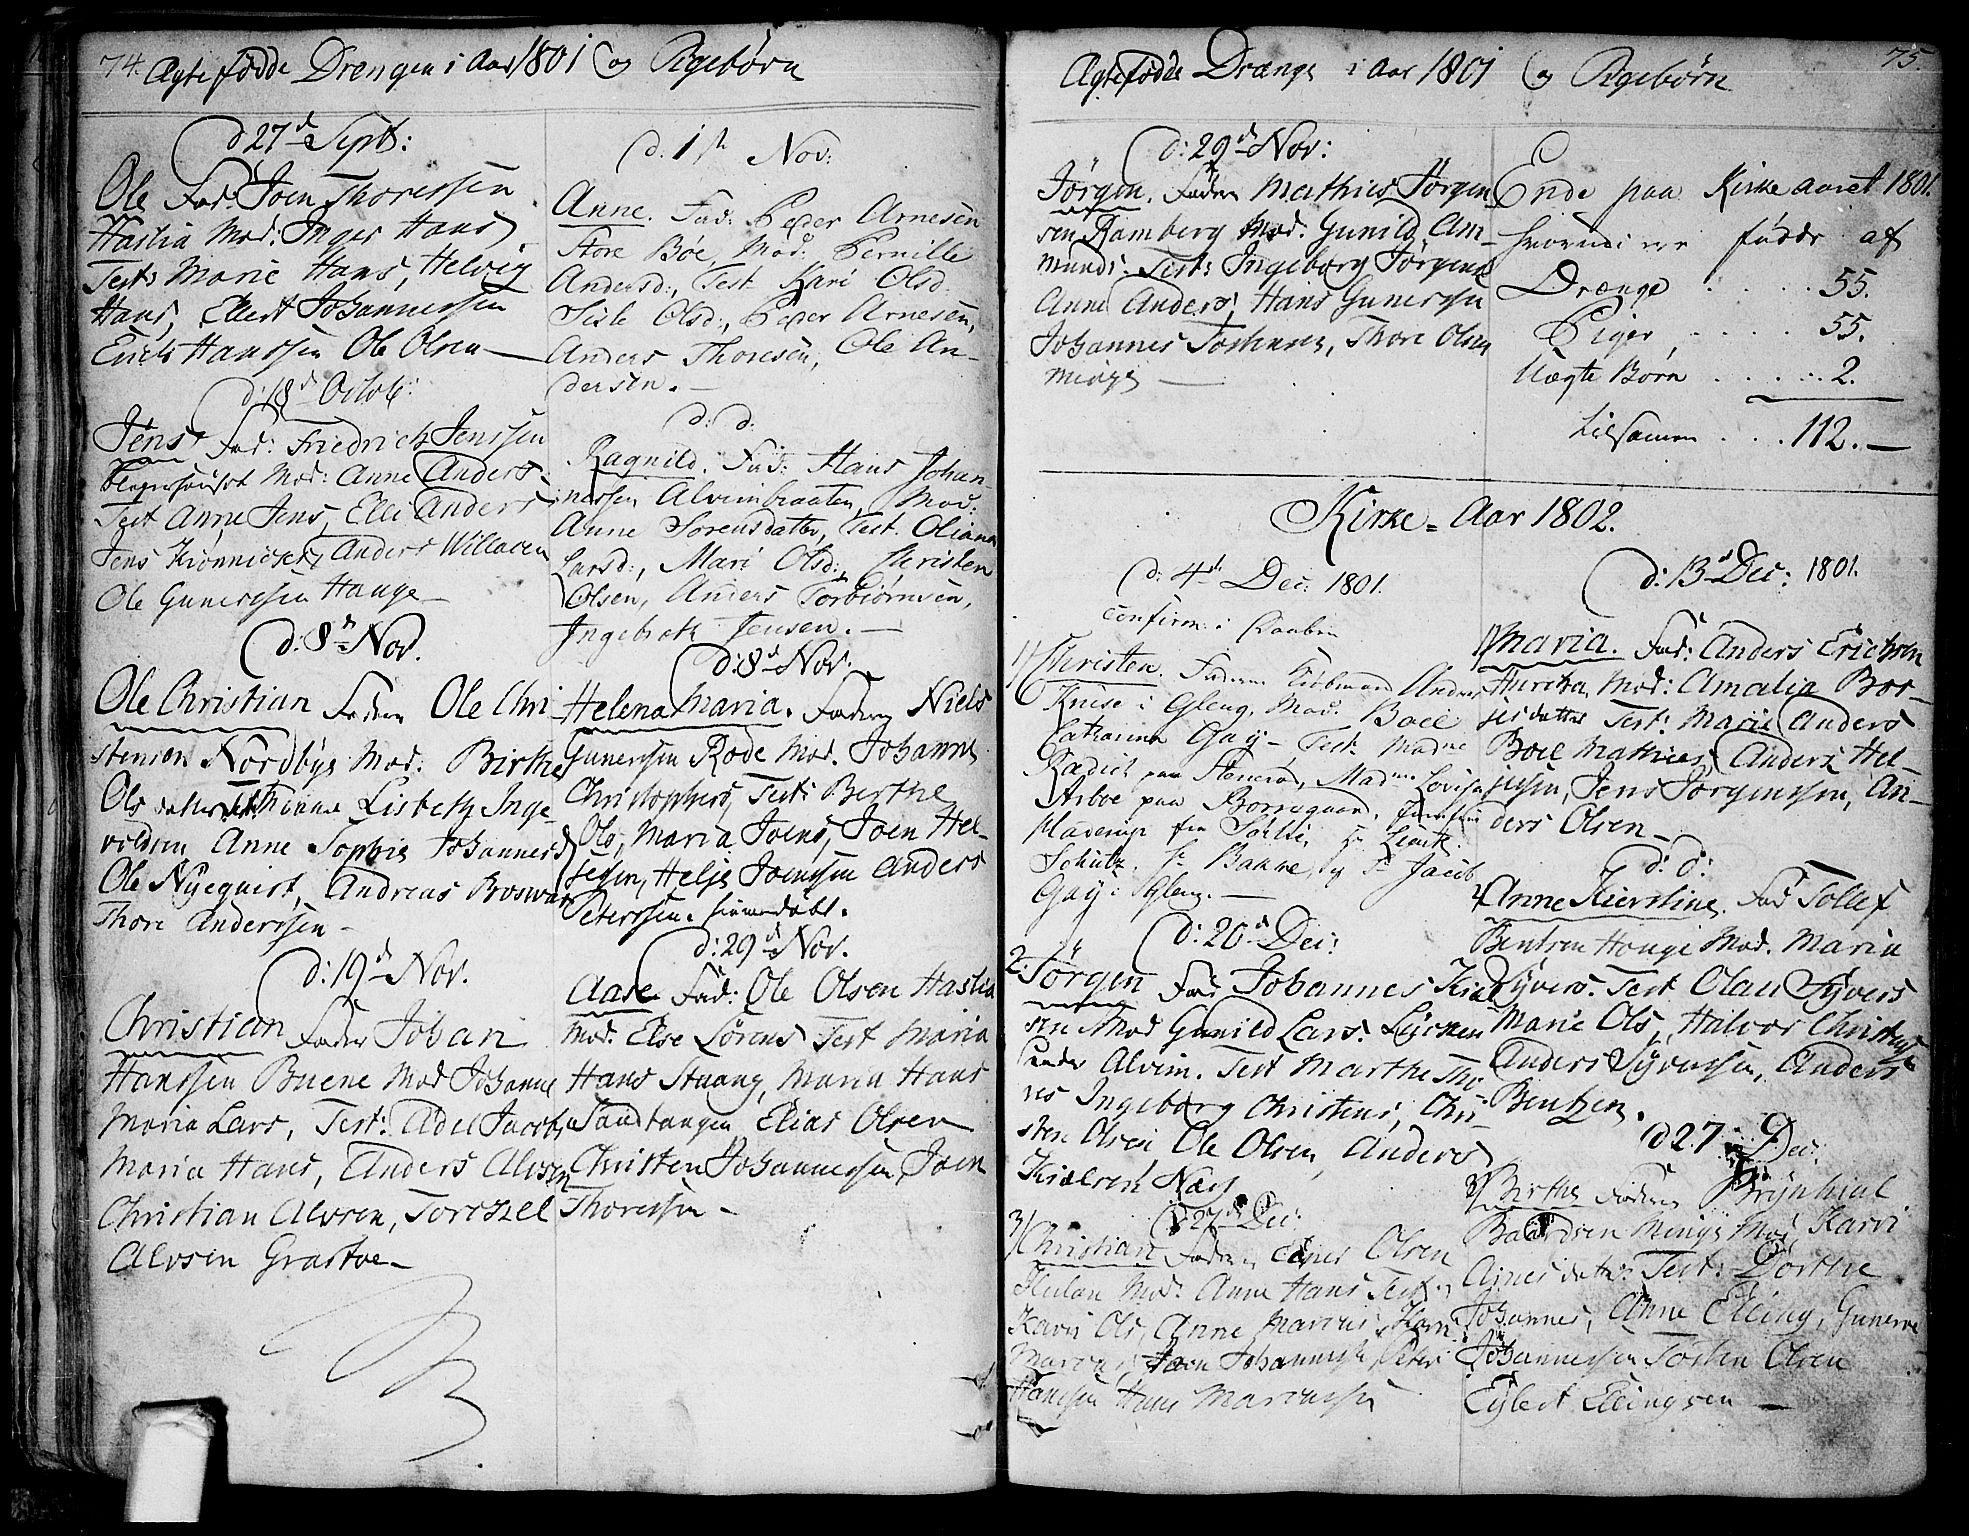 74. Ægtefødde Drengen i Aar 1801 og Pigebørn
d 27d Sept:
Ole Fad: Joen Thoressen
Haslia Mod: Inger Hans
Test: Marie Hans, Helvig
Hans, Ellert Johannessen
Erich Hanssen Ole Olsen
d: 18d Octob:
Jens Fad: Friedrich Jenssen
Mod: Anne Anders
Test Anne Jens, Elli Anders
Jens Anders Willacen
Ole Gunerssen Hauge
d: 8d Nov.
Ole Christian Faderen Ole Chri
stensen Nordbye Mod: Birthe
Ols datter Test: Lisbeth Inge
voldsen Anne Sophie Johannes
Ole Nyequist, Andreas
Thore Anderssen
d: 19d Nov.
Christian Fader Johan
Hanssen Buene Mod Johanne
Maria Lars, Test: Adel Jacobs
Maria Hans, Anders Alvsen
Christian Alvsen, Torchel
Alvsen Graatoe
d. 1ste Nov:
Anne. Fad: Peder Arnesen
Store Böe, Mod: Pernille
Andersd:, Test. Kari Olsd
Sisle Olsd:, Peder Arnesen,
Anders Thoresen, Ole An-
dersen.
d: d:
Ragnild. Fad: Hans Johan
nessen Alvimbraaten, Mod:
Anne Sorensdatter, Test. Oliana
Larsd:, Mari Olsd:, Christen
Olsen, Anders Torbiörnsen,
Ingebreth Jensen.
d: 8d Nov.
Helena Maria. Faderen Niels
Gunerssen Rode Mod. Johanne
Christophers, Test: Berthe
Ols, Maria Joens, Joen Hel-
gesen, Helje Joenssen Anders
Peterssen. hiemmedøbt.
d: 29d Nov.
Aase Fad: Ole Olsen Haslia
Mod. Else Sörens Test Maria
Hans Stuang, Maria Hans
Sandtangen Elias Olsen
Christen Johannessen, Joen
Thoressen
Ægtefødde Drænge i Aar 1801 og Pigebørn 75.
d: 29d Nov:
Jörgen. Faderen Mathies Jörgen
sen Ramberg Mod: Gunild Am-
munds. Test: Ingeborg Jörgens
Anne Anders, Hans Gunerssen
Johannes Tostensen, Thore Olsen
Minge
Ende paa Kirke aaret 1801.
hvorudi ere födde af
Drænge . . . . 55.
Piger . . . . 55.
Uægte Børn . . . . 2.
tilsamen . . . 112.
Kirke-Aar 1802.
d: 4d Dec: 1801.
confirm: i
1) Christen. Faderen Kiöbmand Anders
Kruse i Gleng, Mod. Boel
Catharina Gay - Test. Madme
Radich paa Stenerød, Madme Lovisa
Arboe paa Borregaard,
fra Hr Lieut.
Schütz. Hr Banne, og Hr Jacob
Gay i Gleng.
d: 20d Dec:
2. Jörgen Fad Johannes Kiel
sen Mod Gunild Lars.
under Alvim. Test Marthe Tho
res Ingeborg Christens, Chri-
sten Olsen Ole Olsen, Anders
Kielsen Næs
d 27d Dec:
3) Christian Faderen Olsen
Mod: Anne Hans Test:
Karen Ols, Anne Marcus, Karn
Marcus, Joen Johannessen, Peter
Hanssen Hans Marcussen
d: 13d Dec: 1801.
1) Maria. Fad: Anders Erichsen
Mod: Amalia Bor-
gesdatter Test: Marie Anders
Boel Mathies, Anders Hel-
gesen, Jens Jörgenssen, An-
ders Olsen
d: d:
2 Anne Kierstine. Fad Tollef
Bentsen Houge Mod. Maria
Syvers. Test Olau Syvers
Marie Ols, Halvor Christens
Anders Syverssen, Anders
Bentzen.
d 27 Dec:
3) Birthe Faderen Brynhial
Baardsen Minge Mod Karri
Agnes datter Test: Dorthe
Johannes, Anne Elling, Guner
Johannessen Tosten Olsen
Eylert Ellingsen